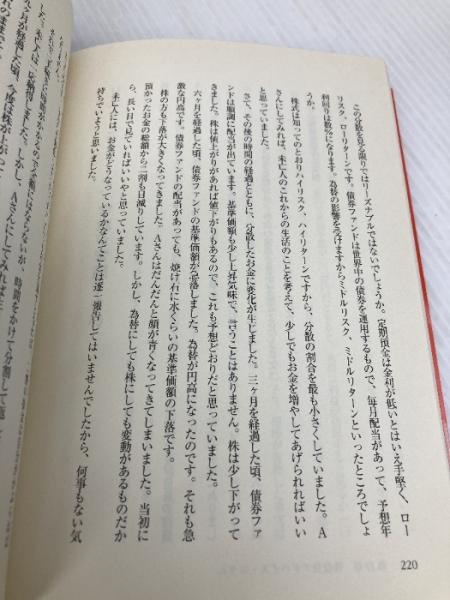 この分散を見る限りではリーズナブルではないでしょうか。定期預金は金利が低いとはいえ手堅く、ロー
リスク、ローリターンです。債券ファンドは世界中の債券を運用するもので、毎月配当があって、予想年
利回りは数％になります。為替の影響を受けますからミドルリスク、ミドルリターンといったところでしょ
うか。
株式は知ってのとおりハイリスク、ハイリターンですから、分散の割合を最も小さくしていました。A
さんにしてみれば、未亡人のこれからの生活のことを考えて、少しでもお金を増やしてあげられればいい
と思っていました。
さて、その後の時間の経過とともに、分散したお金に変化が生じました。三ヶ月を経過した頃、債券ファ
ンドは順調に配当が出ています。基準価額も少し上昇気味で、言うことはありません。株は少し下がって
きました。株は値上がりがあれば値下がりもあるので、これも予想どおりだと思っていました。
六ヶ月を経過した頃、債券ファンドの基準価額が急落しました。為替が円高になったのです。それも急
激な円高です。債券ファンドの配当があっても、焼け石に水くらいの基準価額の下落です。
株の方も下落が大きくなってきました。Aさんはだんだんと顔が青くなってきてしまいました。当初に
預かったお金の総額から二割も目減りしています。しかし、為替にしても株にしても変動があるものだか
ら、長い目で見ていればいいやと思っていました。
未亡人には、お金がどうなっているかなんてことは逐一報告してはいませんでしたから、何事もない気
持ちでいようと思いました。
220